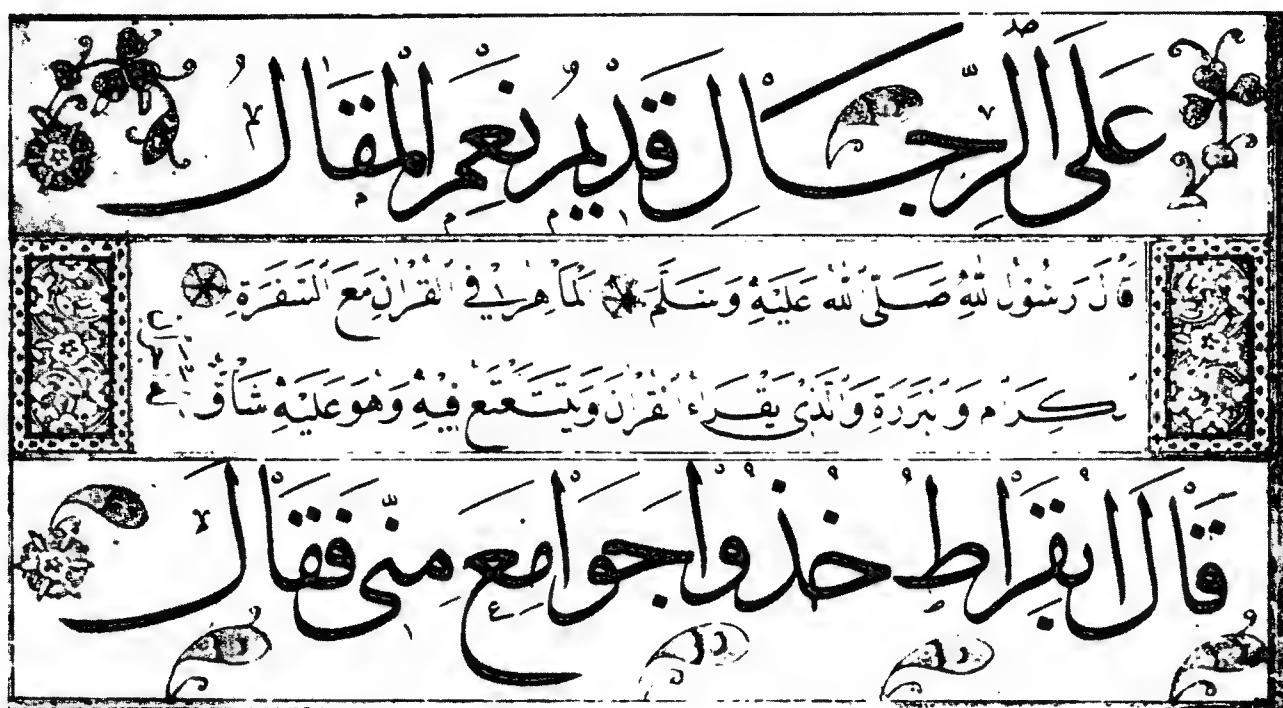 عَلَى الرِّجَالِ قَدِيْمٌ نِعْمَ الْمَقَالُ
قَالَ رَسُوْلُ اللّٰهِ صَلَّى اللّٰهُ عَلَيْهِ وَسَلَّمَ الْمَاهِرُ فِي الْقُرْاٰنِ مَعَ السَّفَرَةِ
الْكِرَامِ وَالْبَرَرَةِ وَالَّذِى يَقْرَاءُ الْقُرْاٰنَ وَيَتَتَعْتَعُ فِيْهِ وَهُوَ عَلَيْهِ شَاقٌّ
قَالَ ابُقْرَاطُ خُذُوْا جَوَامِعَ مِنِّى فَقَالَ